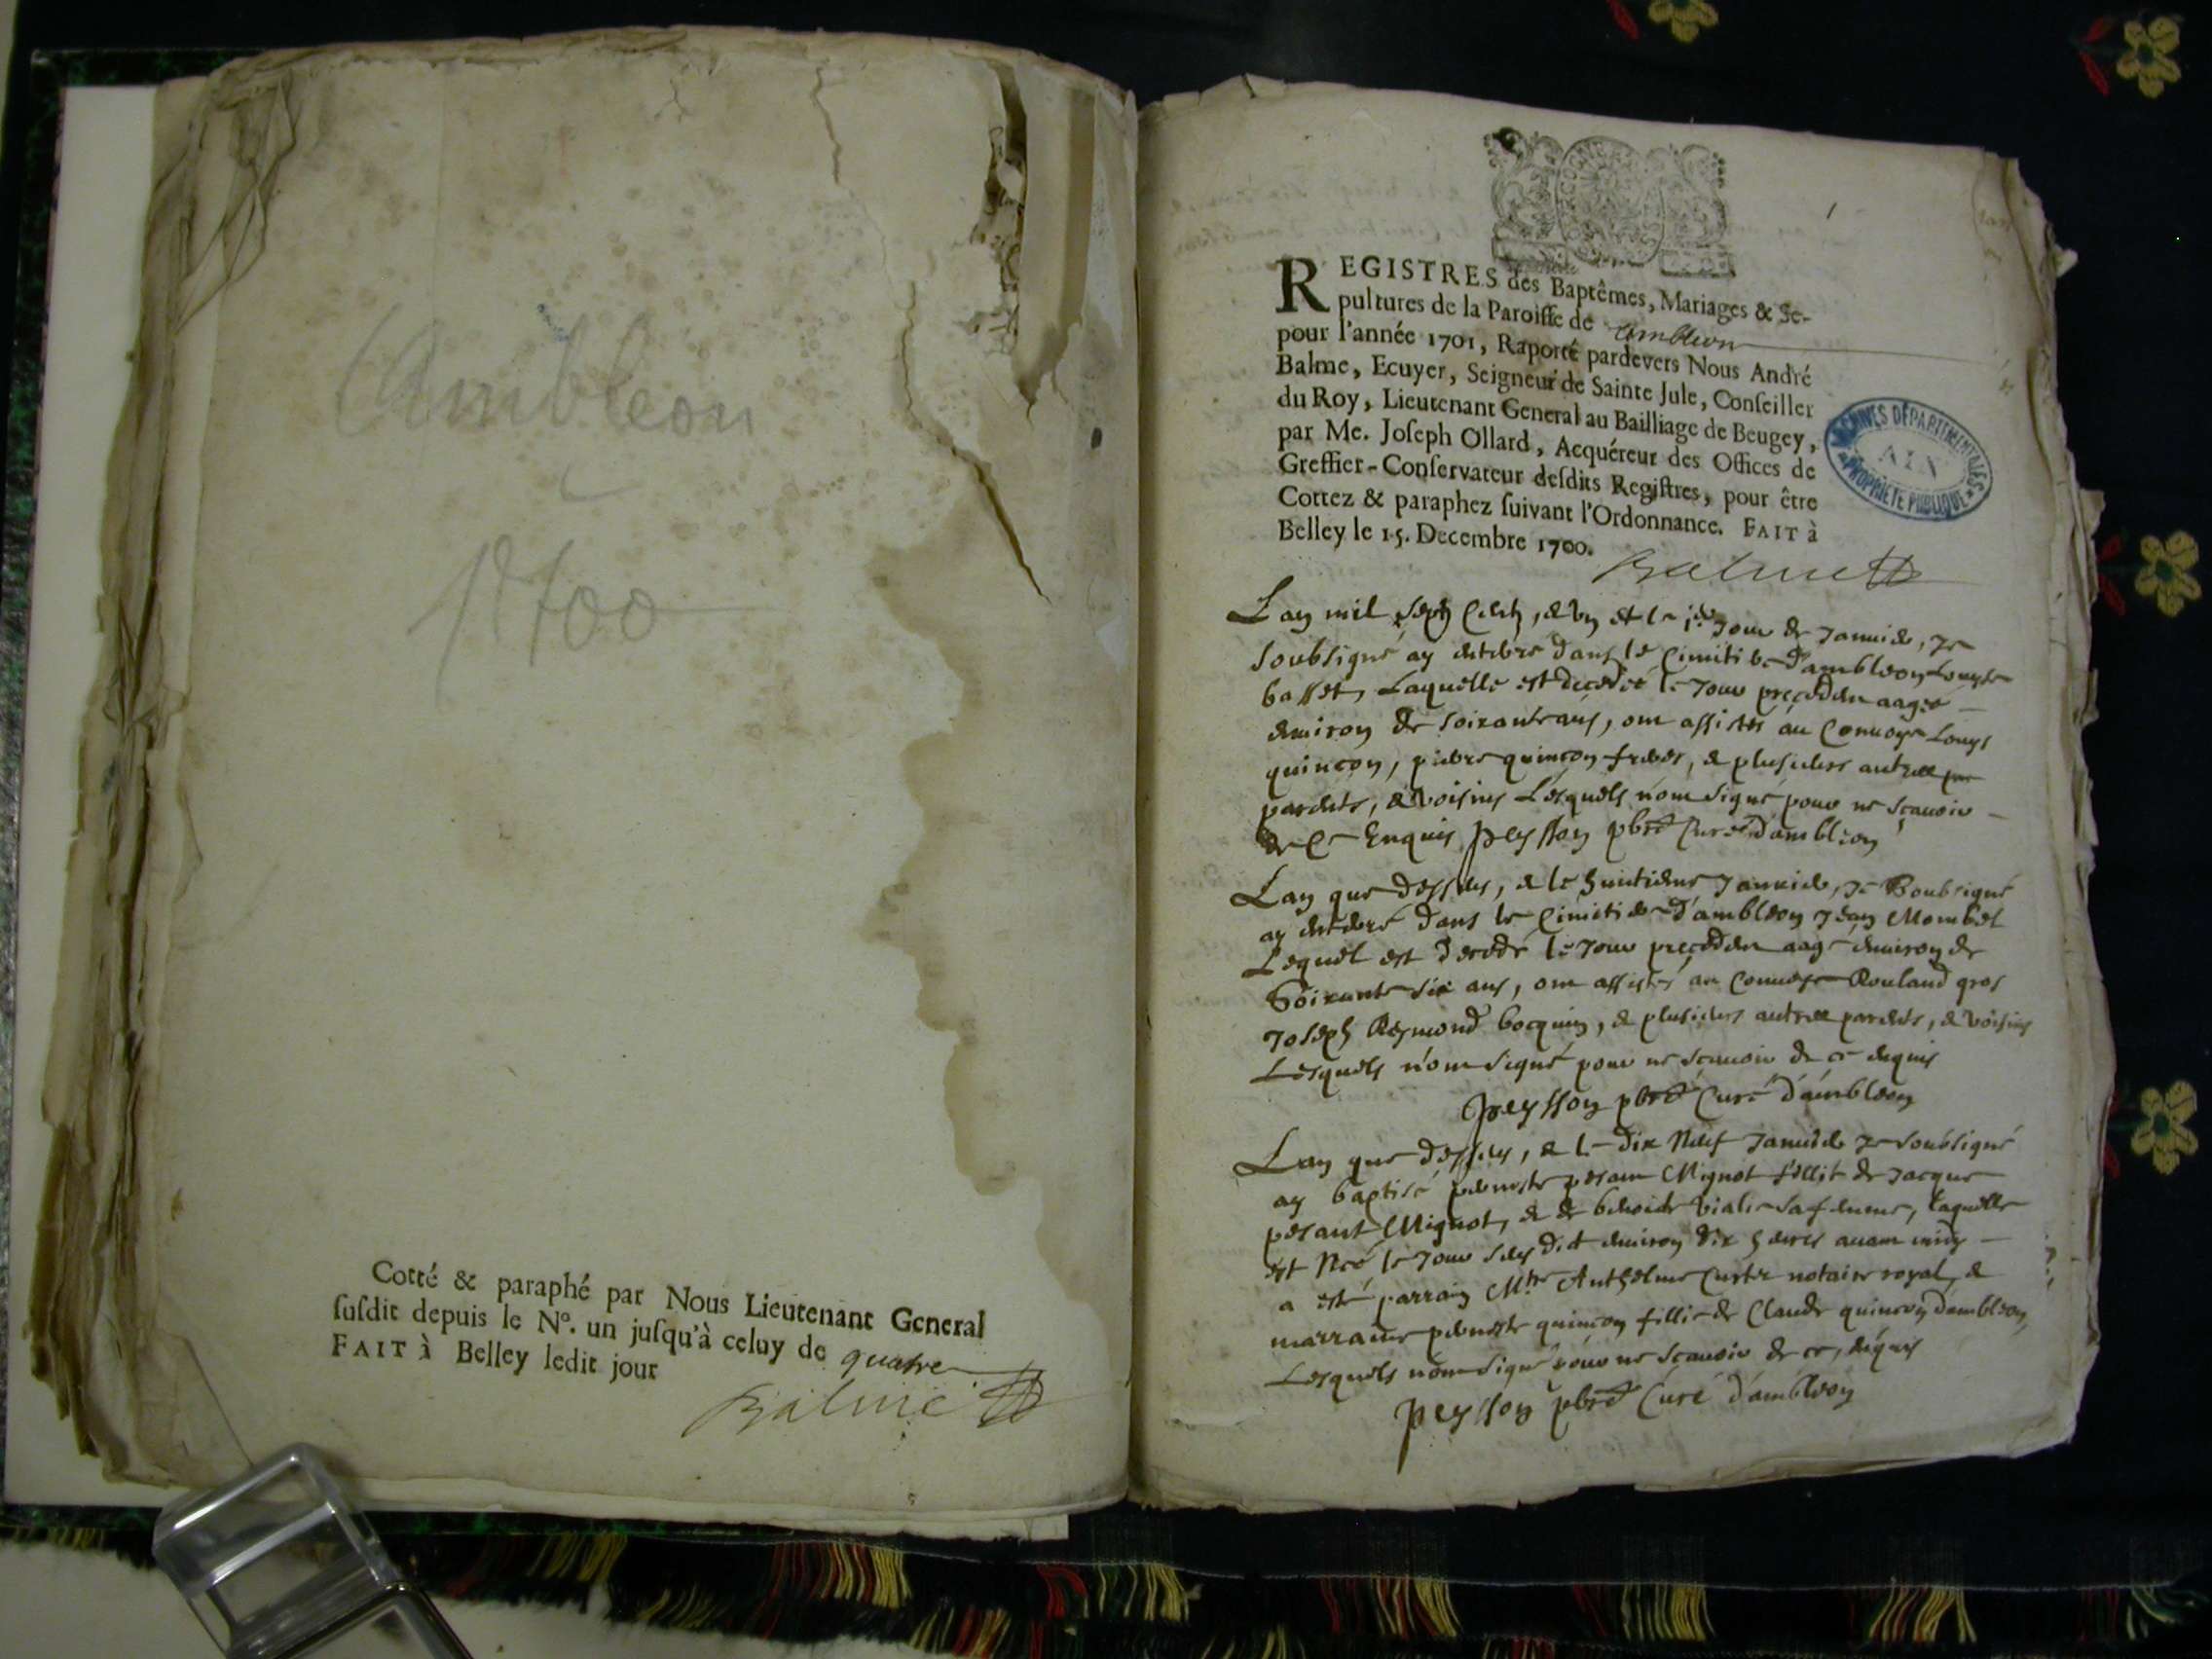 Ambleon
1700
Cotté & paraphé par Nous Lieutenant General
ſuſdit depuis le N°. un juſqu'à celuy de quatre
FAIT à Belley ledit jour
Balme
1
REGISTRES des Baptêmes, Mariages & Se-
pultures de la Paroiſſe de Ambleon
pour l'année 1701, Raporté pardevers Nous André
Balme, Ecuyer, Seigneur de Sainte Jule, Conſeiller
du Roy, Lieutenant General au Bailliage de Beugey,
par Me. Joſeph Ollard, Acquéreur des Offices de
Greffier-Conſervateur deſdits Regiſtres, pour être
Cottez & paraphez ſuivant l'Ordonnance. FAIT à
Belley le 15. Decembre 1700.
Balme
ARCHIVES DÉPARTEMENTALES
AIN
PROPRIÉTÉ PUBLIQUE
Lan mil sept cent, & un et le jour de Januier, Je
soubsigné ay enterre dans le Cimitiere d'ambleon Louyse
basset, Laquelle est decedée le Jour preceden aagée
enuiron de soixante ans, ont assistés au Conuoye Louys
quincon, pierre quincon freres, & plusieurs autres
parents, & voisins Lesquels n'ont signé pour ne scauoir
de ce Enquis Peysson pbre Curé d'ambleon
Lan que dessus, & le huitieme Januier, Je Soubsigné
ay enterré dans le Cimitiere d'ambleon Jean Mombel
Lequel est decedé le Jour preceden aagé enuiron de
Soixante six ans, ont assistés au Conuoye Rouland gros
Joseph Reymond bocquin, & plusieurs autres parents, & voisins
Lesquels n'ont signé pour ne scauoir de ce enquis
Peysson pbre Curé d'ambleon
Lan que dessus, & le dix Neuf Januier Je soubsigné
ay baptisé pernette pesant Mignot fillie de Jacque
pesant Mignot, & de benoite Vialle sa femme, Laquelle
est Née le Jour susdit enuiron dix heures auant
a esté parrain Mtre Anthelme notaire royal, &
marraine pernette quincon fillie de Claude quincon d'ambleon,
Lesquels n'ont signé pour ne scauoir de ce, enquis
Peysson pbre Curé d'ambleon